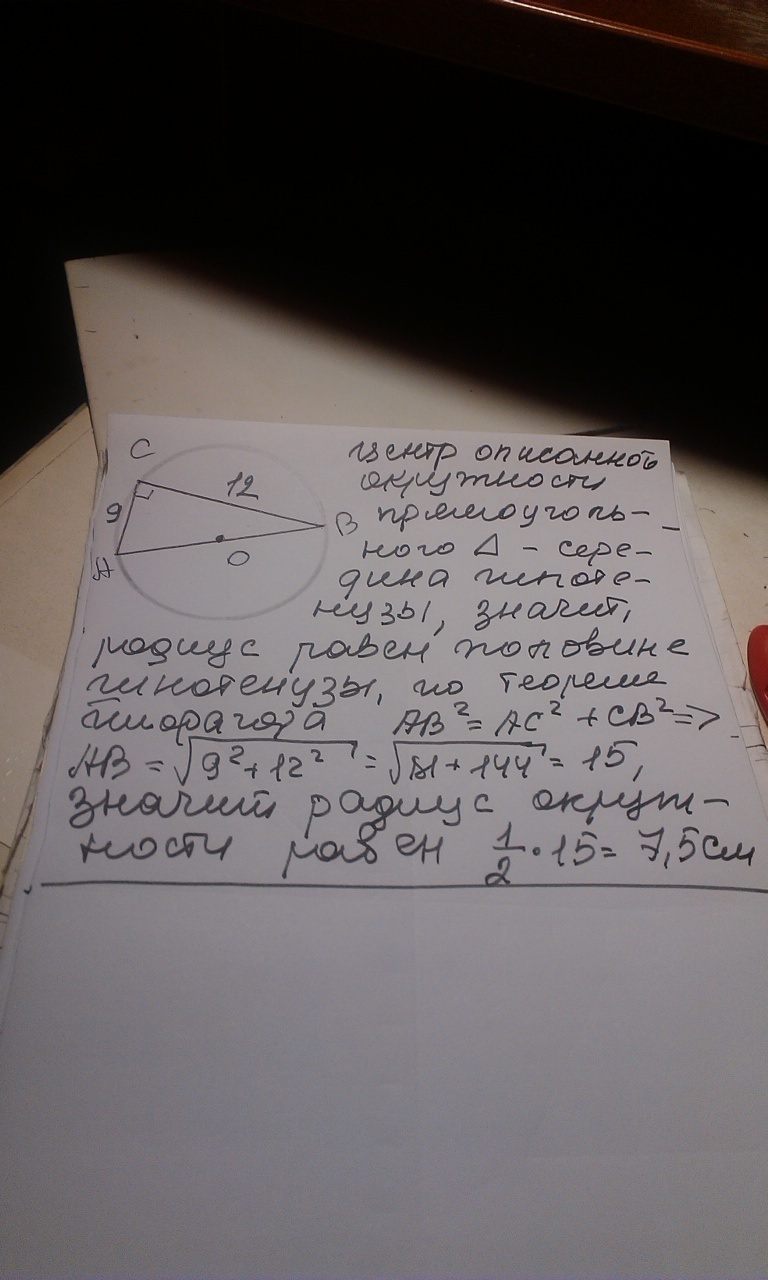 C
12
9
B
A
O
Центр описанной
окружности
прямоуголь-
ного Δ - сере-
дина гипоте-
нузы, значит,
радиус равен половине
гипотенузы, по теореме
Пифагора AB² = AC² + CB² =>
AB = √9² + 12² = √81 + 144 = 15,
значит радиус окруж-
ности равен 1/2 · 15 = 7,5 см